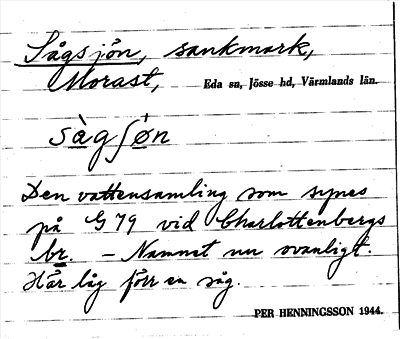 Sågsjön, sankmark,
Morast, Eda sn, Jösse hd, Värmlands län.
sàgʃø̀n
Den vattensamling som synes
på G 79 vid Charlottenbergs
br. - Namnet nu ovanligt.
Här låg förr en såg.
PER HENNINGSSON 1944.